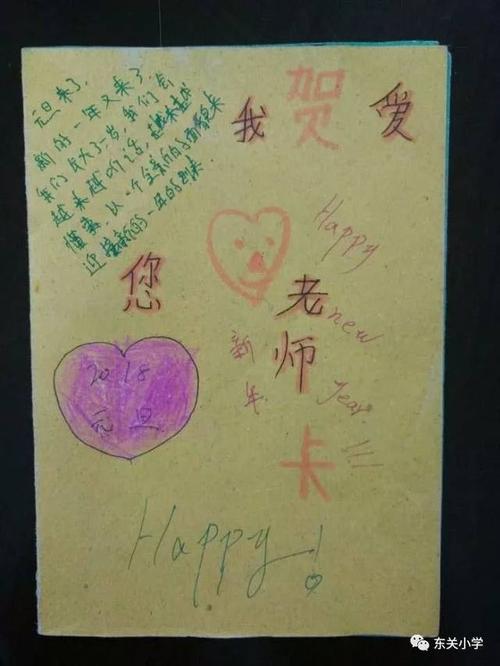 元旦来了，
新的一年又来了
我们长大了一岁，我们会
越来越听话，越来越
懂事，以一个全新的面貌来
迎接新的一年的到来
我 贺 爱
您 老师
卡
Happy
new
Year!!!
新年
2018
元旦
Happy!
东关小学